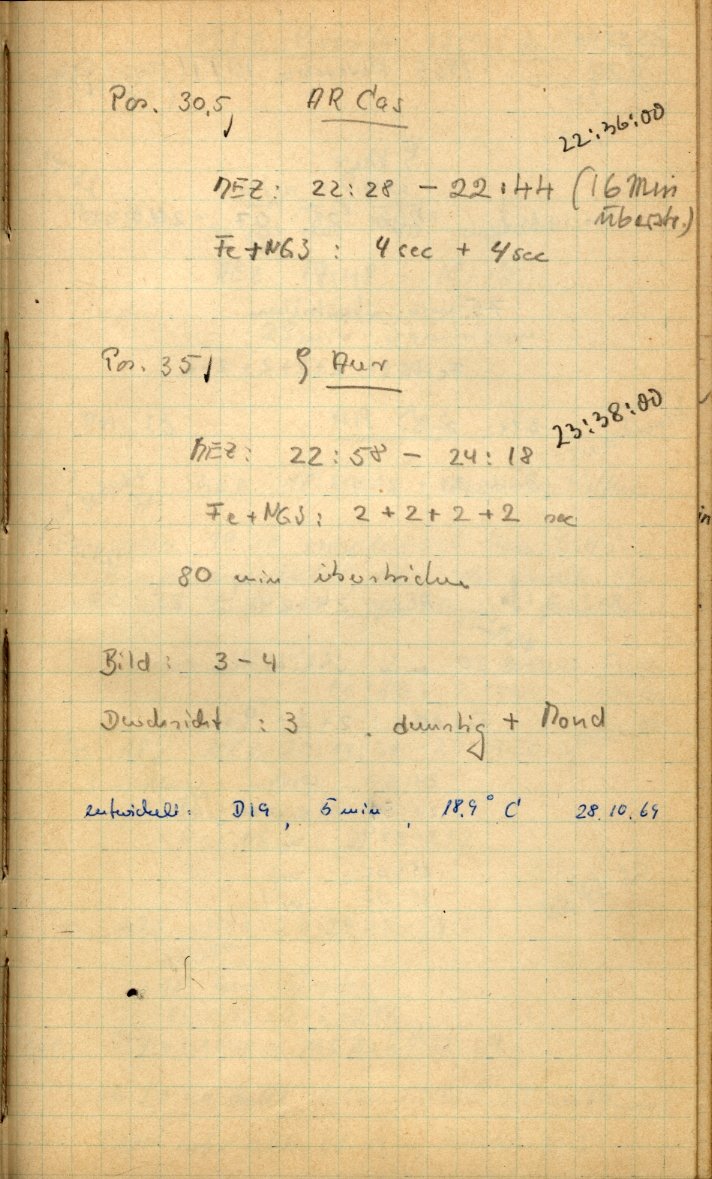 Pos. 30,5, AR Cas
22:36:00
MEZ: 22:28 - 22:44 (16 Min
überstr.)
Fe+NGS : 4 sec + 4 sec
Pos. 35, ζ Aur
23:38:00
MEZ: 22:58 - 24:18
Fe+NGS: 2+2+2+2 sec
80 min überstrichen
Bild: 3-4
Durchsicht : 3 . dunstig + Mond
entwickelt: D19, 5 min, 18.9° C 28.10.69